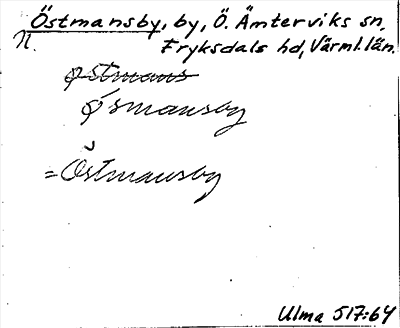 Östmansby, by, Ö. Ämterviks sn,
n. Fryksdals hd, Värml. län.
østmans
øsmansby
= Östmansby
Ulma 517:64